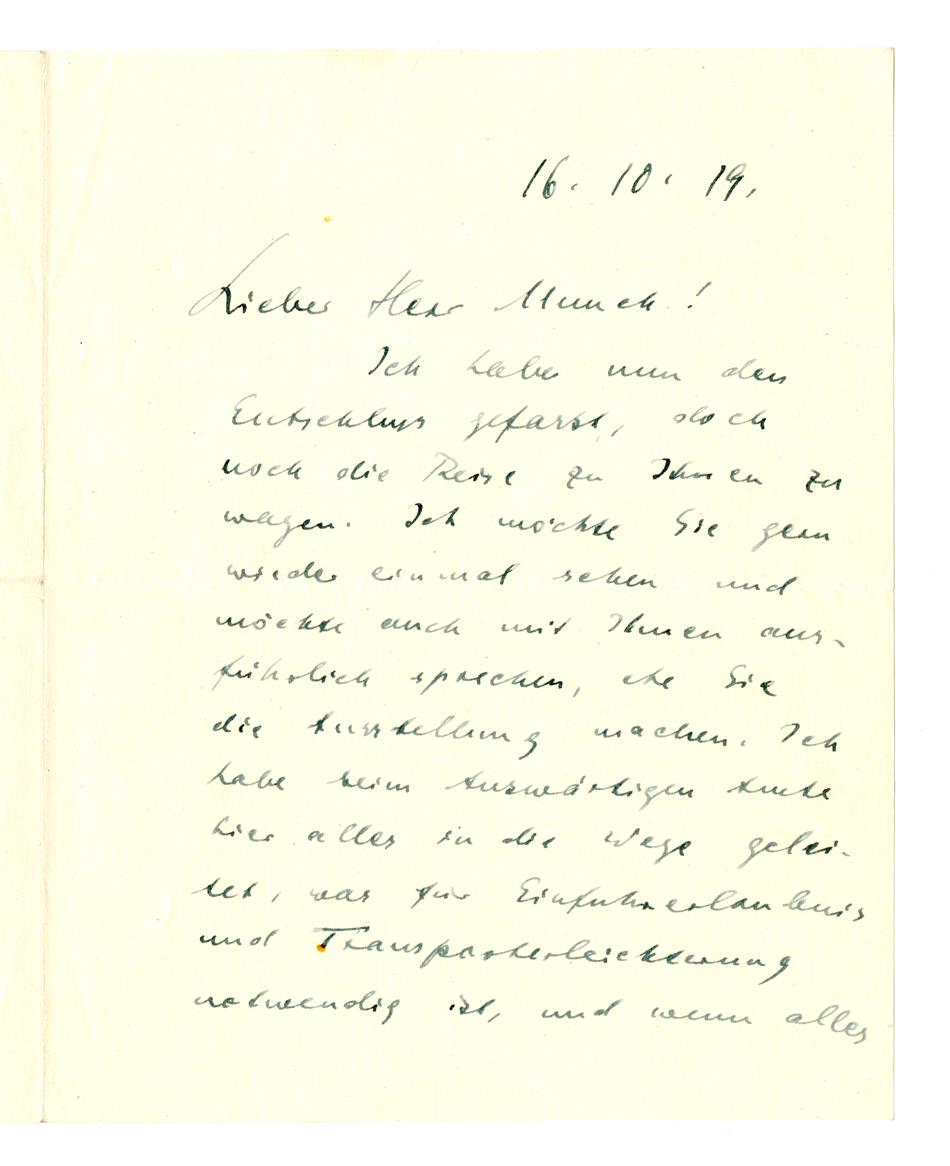 16. 10. 19.
Lieber Herr Munch!
Ich habe nun den
Entschluss gefasst, doch
noch die Reise zu Ihnen zu
wagen. Ich möchte Sie gern
wieder einmal sehen und
möchte auch mit Ihnen aus-
führlich sprechen, ehe Sie
die Ausstellung machen. Ich
habe beim Auswärtigen Amte
hier alles in die Wege gelei-
tet, was für Einfuhrerlaubnis
und Transporterleichterung
notwendig ist, und wenn alles